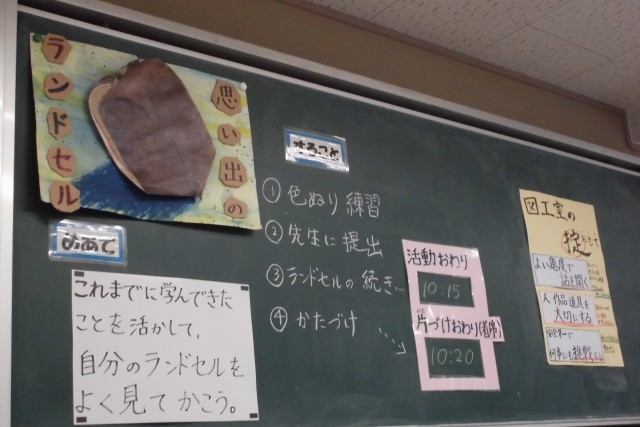 思い出の
ランドセル
めあて
これまでに学んできた
ことを活かして、
自分のランドセルを
よく見てかこう。
すること
①色ぬり練習
②先生に提出
③ランドセルの続き…
④かたづけ
活動おわり
10:15
片づけおわり(着席)
10:20
図工室の
掟
よい態度で
話を聞く
人、作品、道具を
大切にする
何事にも挑戦する